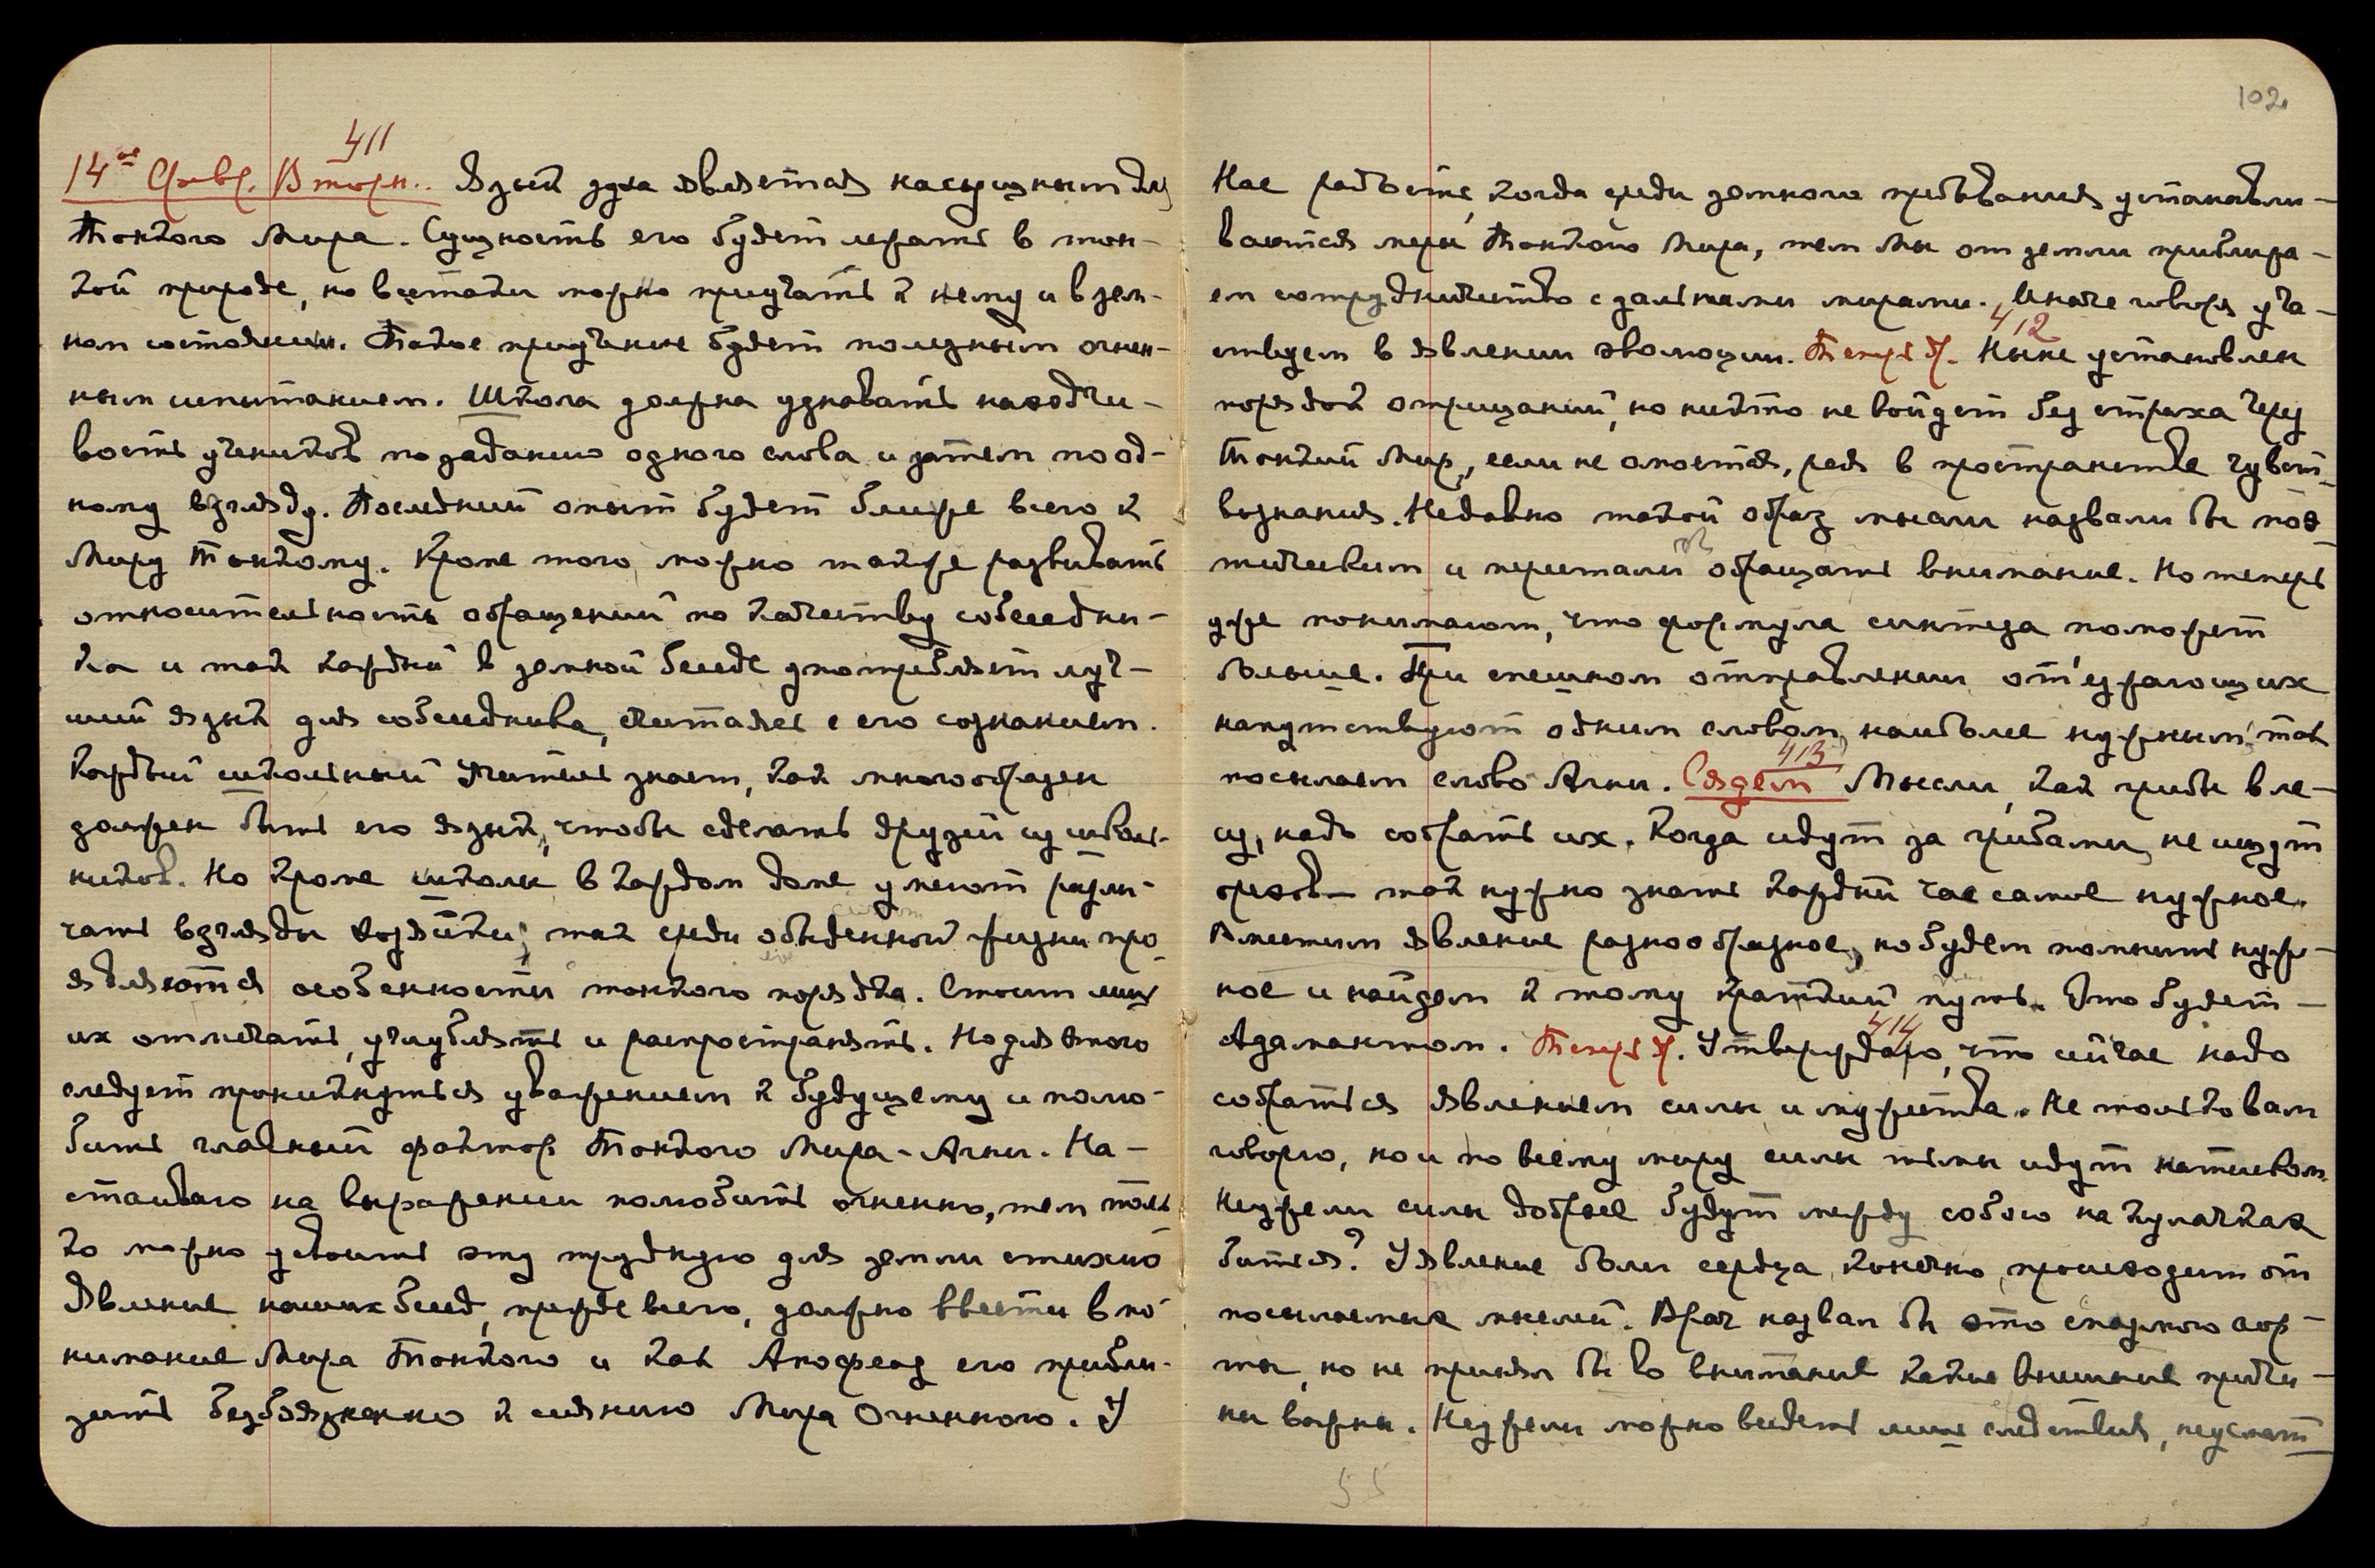 411
14ое Февр. Вторн.. Язык духа является насущным для
Тонкого Мира. Сущность его будет лежать в тон-
кой природе, но всетаки можно приучать к нему и в зем-
ном состоянии. Такое приучение будет полезным огнен-
ным испытанием. Школа должна узнавать находчи-
вость учеников по заданию одного слова и затем по од-
ному взгляду. Последний опыт будет ближе всего к
Миру Тонкому. Кроме того, можно также развивать
относительность обращений по качеству собеседни-
ка и так каждый в земной беседе употребляет луч-
ший язык для собеседника, считаясь с его сознанием.
Каждый школьный Учитель знает, как многообразен
должен быть его язык, чтобы сделать друзей из школь-
ников. Но кроме школы в каждом доме умеют разли-
чать взгляды хозяйки; так среди обыденной жизни про-
являются особенности тонкого порядка. Стоит лишь
их отмечать, углублять и распространять. Но для этого
следует проникнуться уважением к будущему и полю-
бить главный фактор Тонкого Мира - Агни. На-
стаиваю на выражении полюбить огненно, тем толь
ко можно усвоить эту трудную для земли стихию
Явление наших бесед, прежде всего, должно ввести в по-
нимание Мира Тонкого и как Апофеоз его прибли-
зить безбоязненно к сиянию Мира Огненного. У
102
Нас радость, когда среди земного пребывания устанавли-
ваются меры Тонкого Мира, тем мы от земли приближа-
ем сотрудничество с дальними мирами. Иначе говоря уча-
412
ствуем в явлении эволюции. Теперь У. Ныне установлен
порядок отрицаний, но никто не войдет без страха через
Тонкий Мир, если не омоется, реая в пространстве чувст-
вознания. Недавно такой образ мысли назвали бы поэ
тическим и перестали бы обращать внимание. Но теперь
уже понимают, что формула синтеза поможет
больше. При спешном отправлении отъезжающих
напутствуют одним словом, наиболее нужным, так
413
посылаем слово Агни. Сядем Мысли, как грибы в ле-
су, надо собрать их. Когда идут за грибами, не ищут
орехов — так нужно знать каждый час самое нужное.
Вместим явление разнообразное, но будем помнить нуж-
ное и найдем к тому краткий путь. Это будет —
414
Адамантом. Теперь У. Утверждаю, что сейчас надо
собраться явлением силы и мужества. Не только вам
говорю, но и по всему миру силы тьмы идут натиском.
Неужели силы добрые будут между собою на кулачках
биться? Уявление боли сердца, конечно, происходит от
посылаемых мыслей. Врач назвал бы это спазмою аор-
ты, но не принял бы во внимание какие внешние причи-
ны важны. Неужели можно видеть лишь следствия, не усмат
55